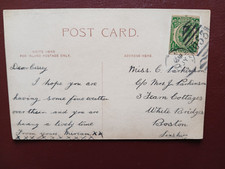 POST CARD.
Dear Cissy
I hope you are
having some fine weather
over there. and also
having a lively time
From yours, Miriam XX
Miss C. Parkinson
c/o Mrs J. Parkinson
3 Team Cottages
White Bridges
Boston
Lincs